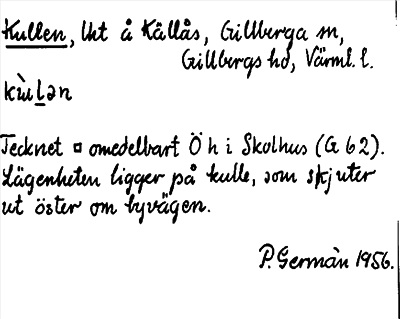 Kullen, lht å Källås, Gillberga sn,
Gillbergs hd, Värml. l.
kùlən
Tecknet ¤ omedelbart Ö h i Skolhus (G 62).
Lägenheten ligger på kulle, som skjuter
ut öster om byvägen.
P. Germàn 1956.